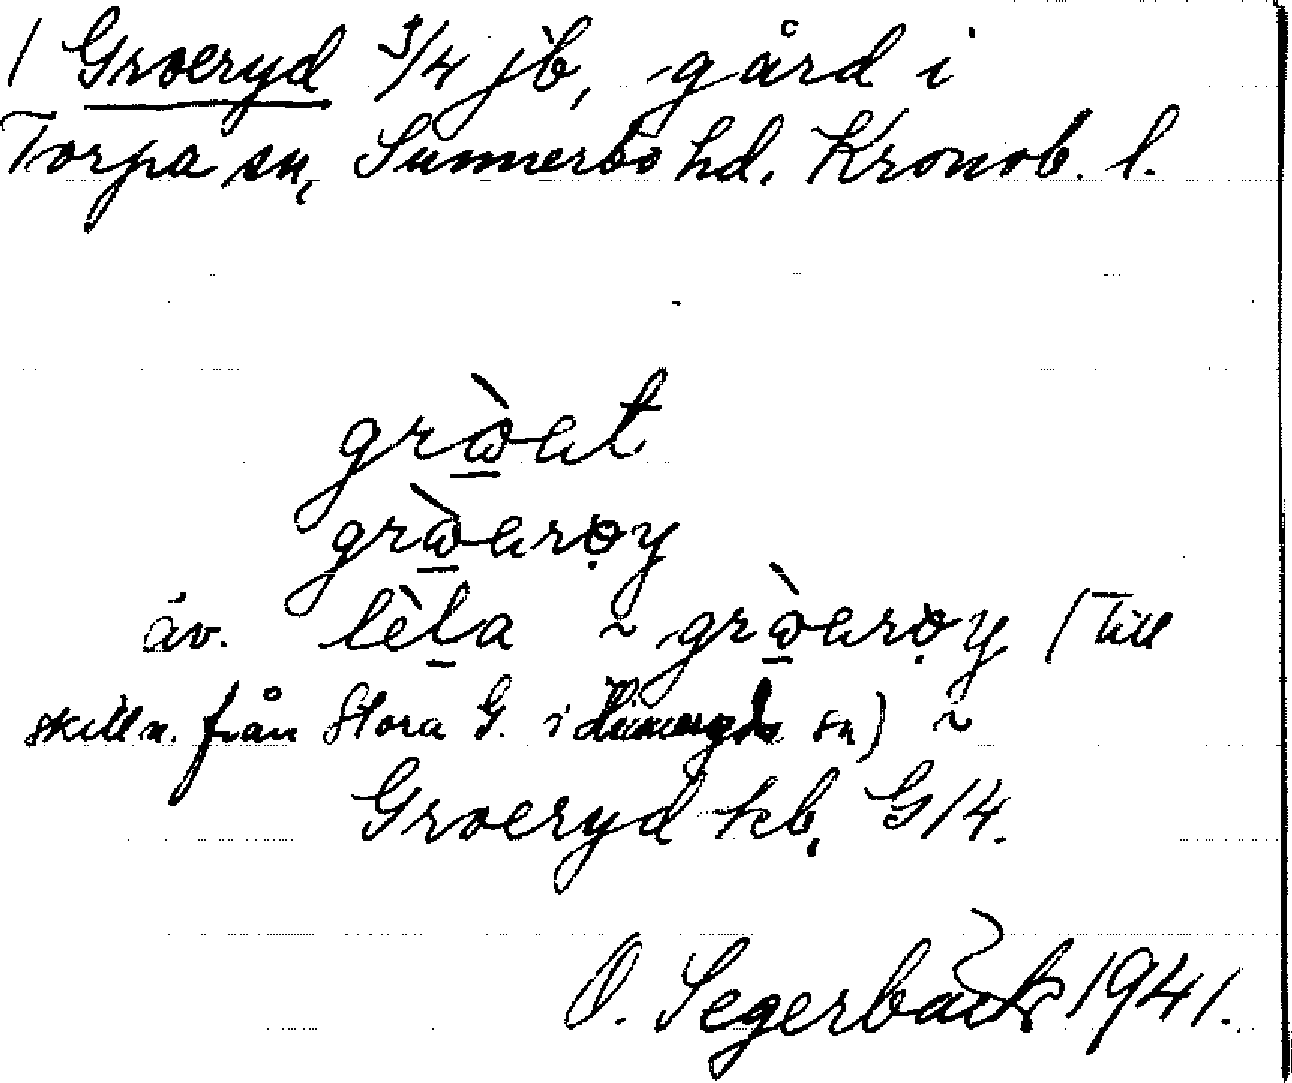 1 Groeryd 3/4 jb, gård i
Torpa sn, Sunnerbo hd. Kronob. l.
gròet
gròerøy
äv. lèla ~ gròerøy (till
skilln. från Stora G. i sn) ~
Groeryd kb, G14.
O. Segerbäck 1941.